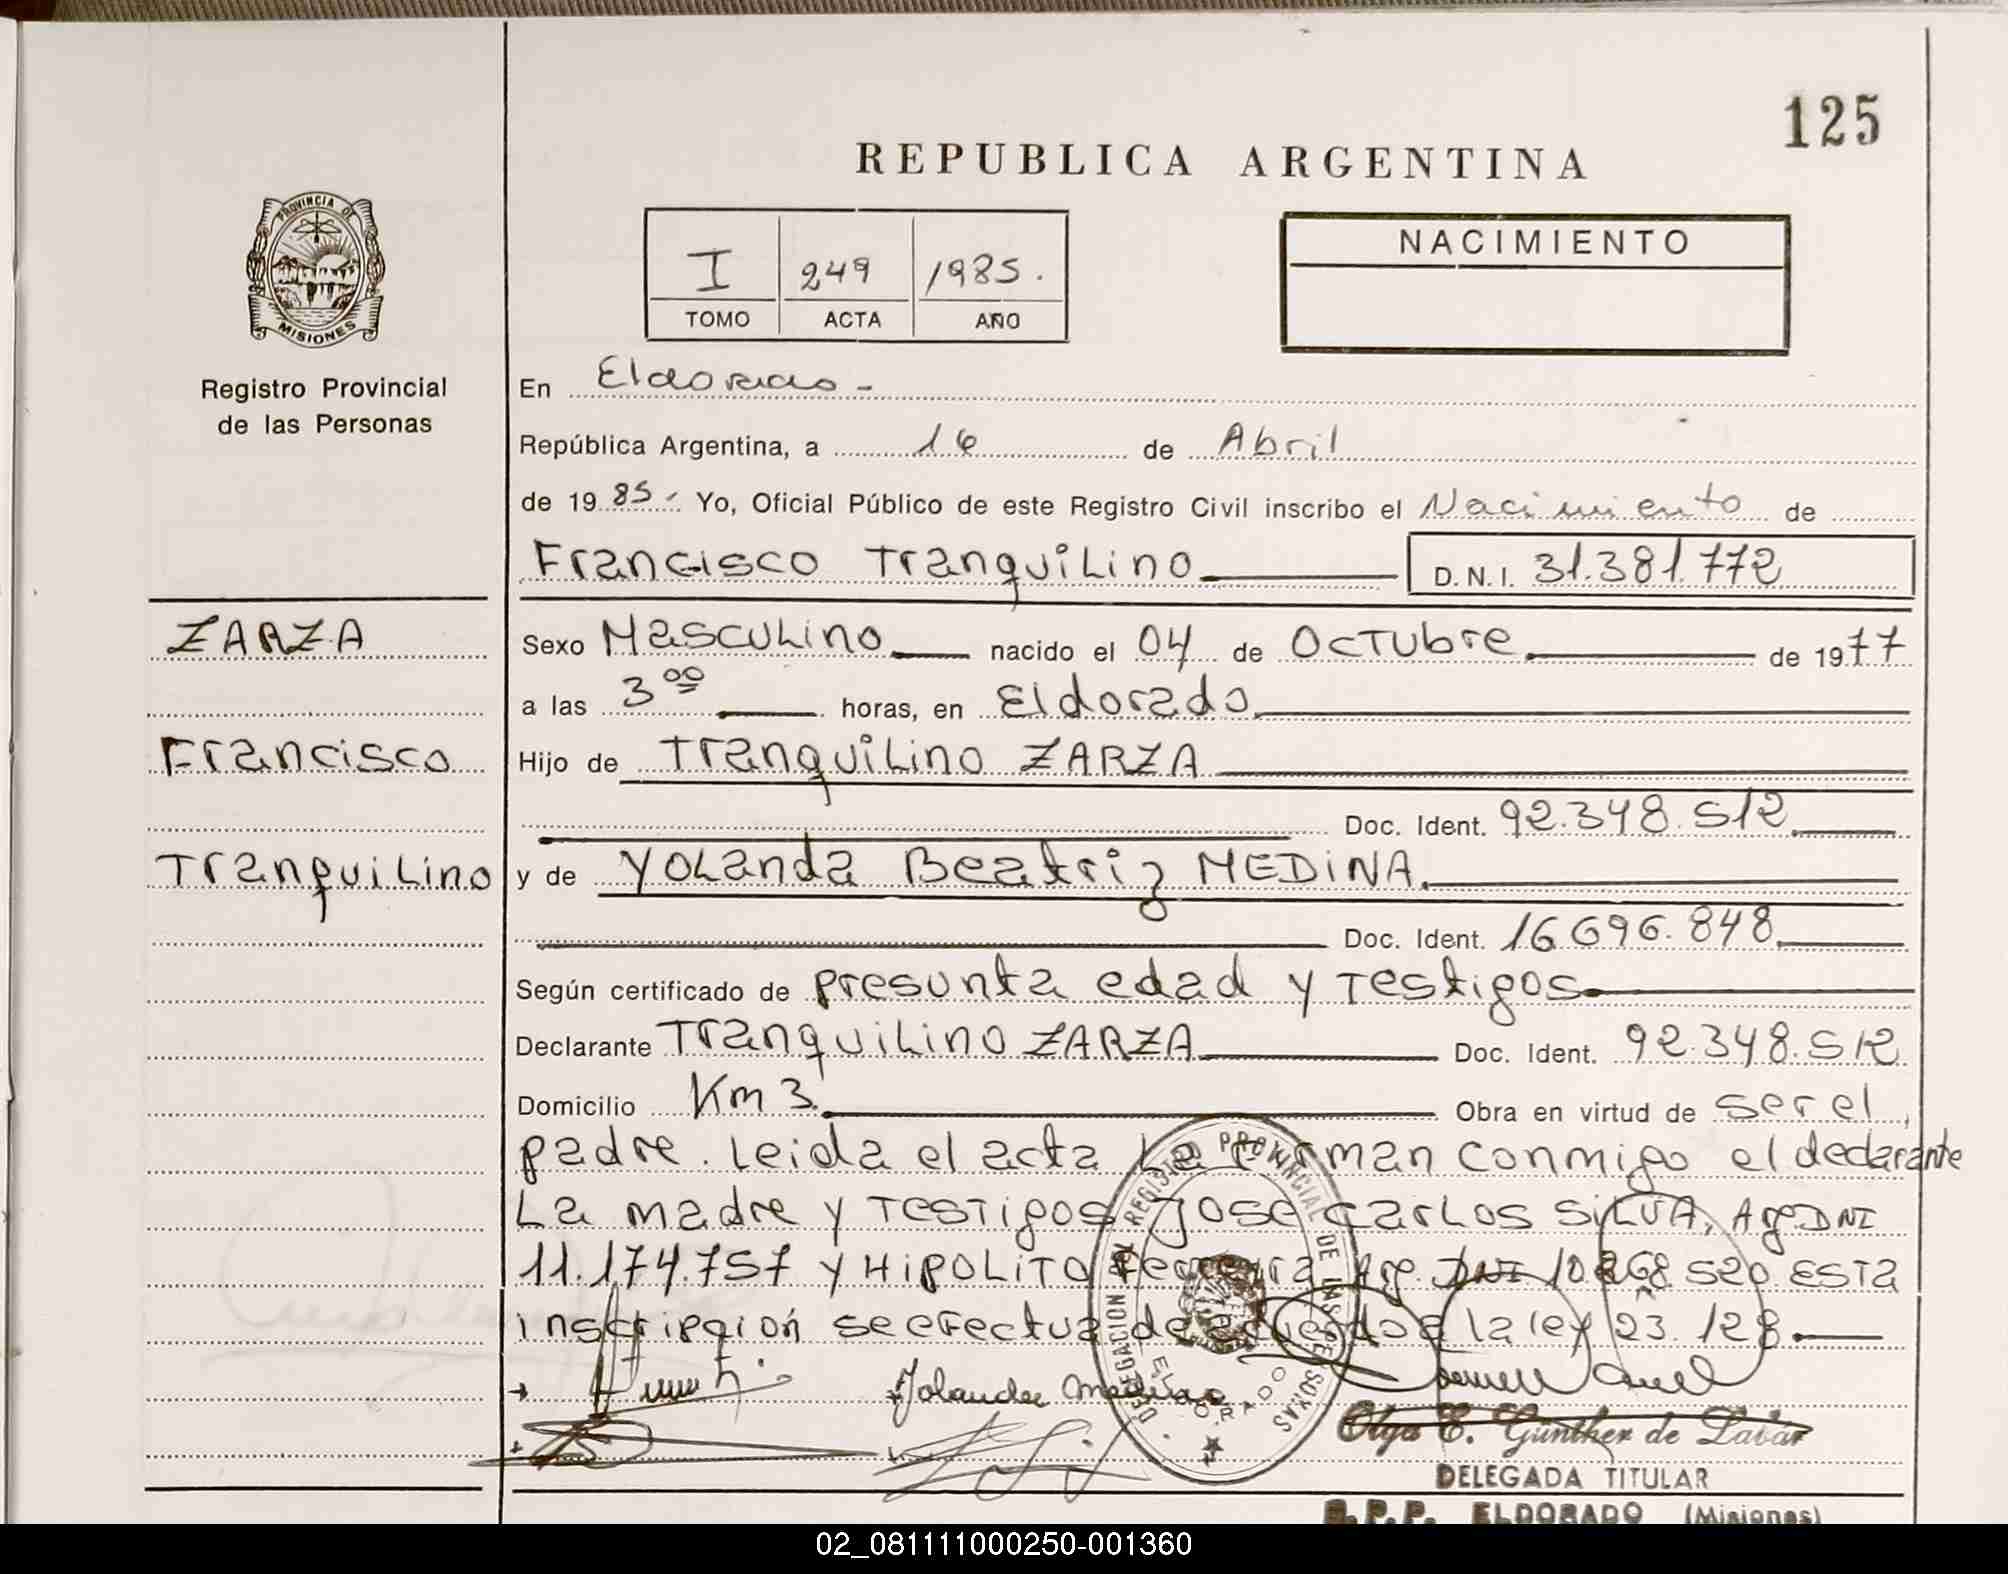 125
REPUBLICA ARGENTINA
PROVINCIA DE
MISIONES
Registro Provincial
de las Personas
I 249 1985.
TOMO ACTA AÑO
NACIMIENTO
En Eldorado -
República Argentina, a 16 de Abril
de 1985. Yo, Oficial Público de este Registro Civil inscribo el Nacimiento de
Francisco Tranquilino D.N.I. 31.381.772
ZARZA
Francisco
Tranquilino
Sexo Masculino nacido el 04 de Octubre de 1977
a las 3 00 horas, en Eldorado
Hijo de Tranquilino ZARZA
Doc. Ident. 92.348.512
y de Yolanda Beatriz MEDINA
Doc. Ident. 16.696.848
Según certificado de presunta edad y Testigos
Declarante Tranquilino ZARZA Doc. Ident. 92.348.512
Domicilio Km 3. Obra en virtud de ser el
padre. Leida el acta La firman conmigo el declarante
La madre y Testigos Jose Carlos SILVA, Arg. DNI
11.174.757 y HIPOLITO Ferreira Arg. DNI 10.268.520 ESTA
inscripción se efectua de acuerdo a la ley 23.128.
Yolanda Medina
DELEGACION REGISTRO PROVINCIAL DE LAS PERSONAS
ELDORADO
Olga E. Günther de Labar
DELEGADA TITULAR
R.P.P. ELDORADO (Misiones)
02_081111000250-001360